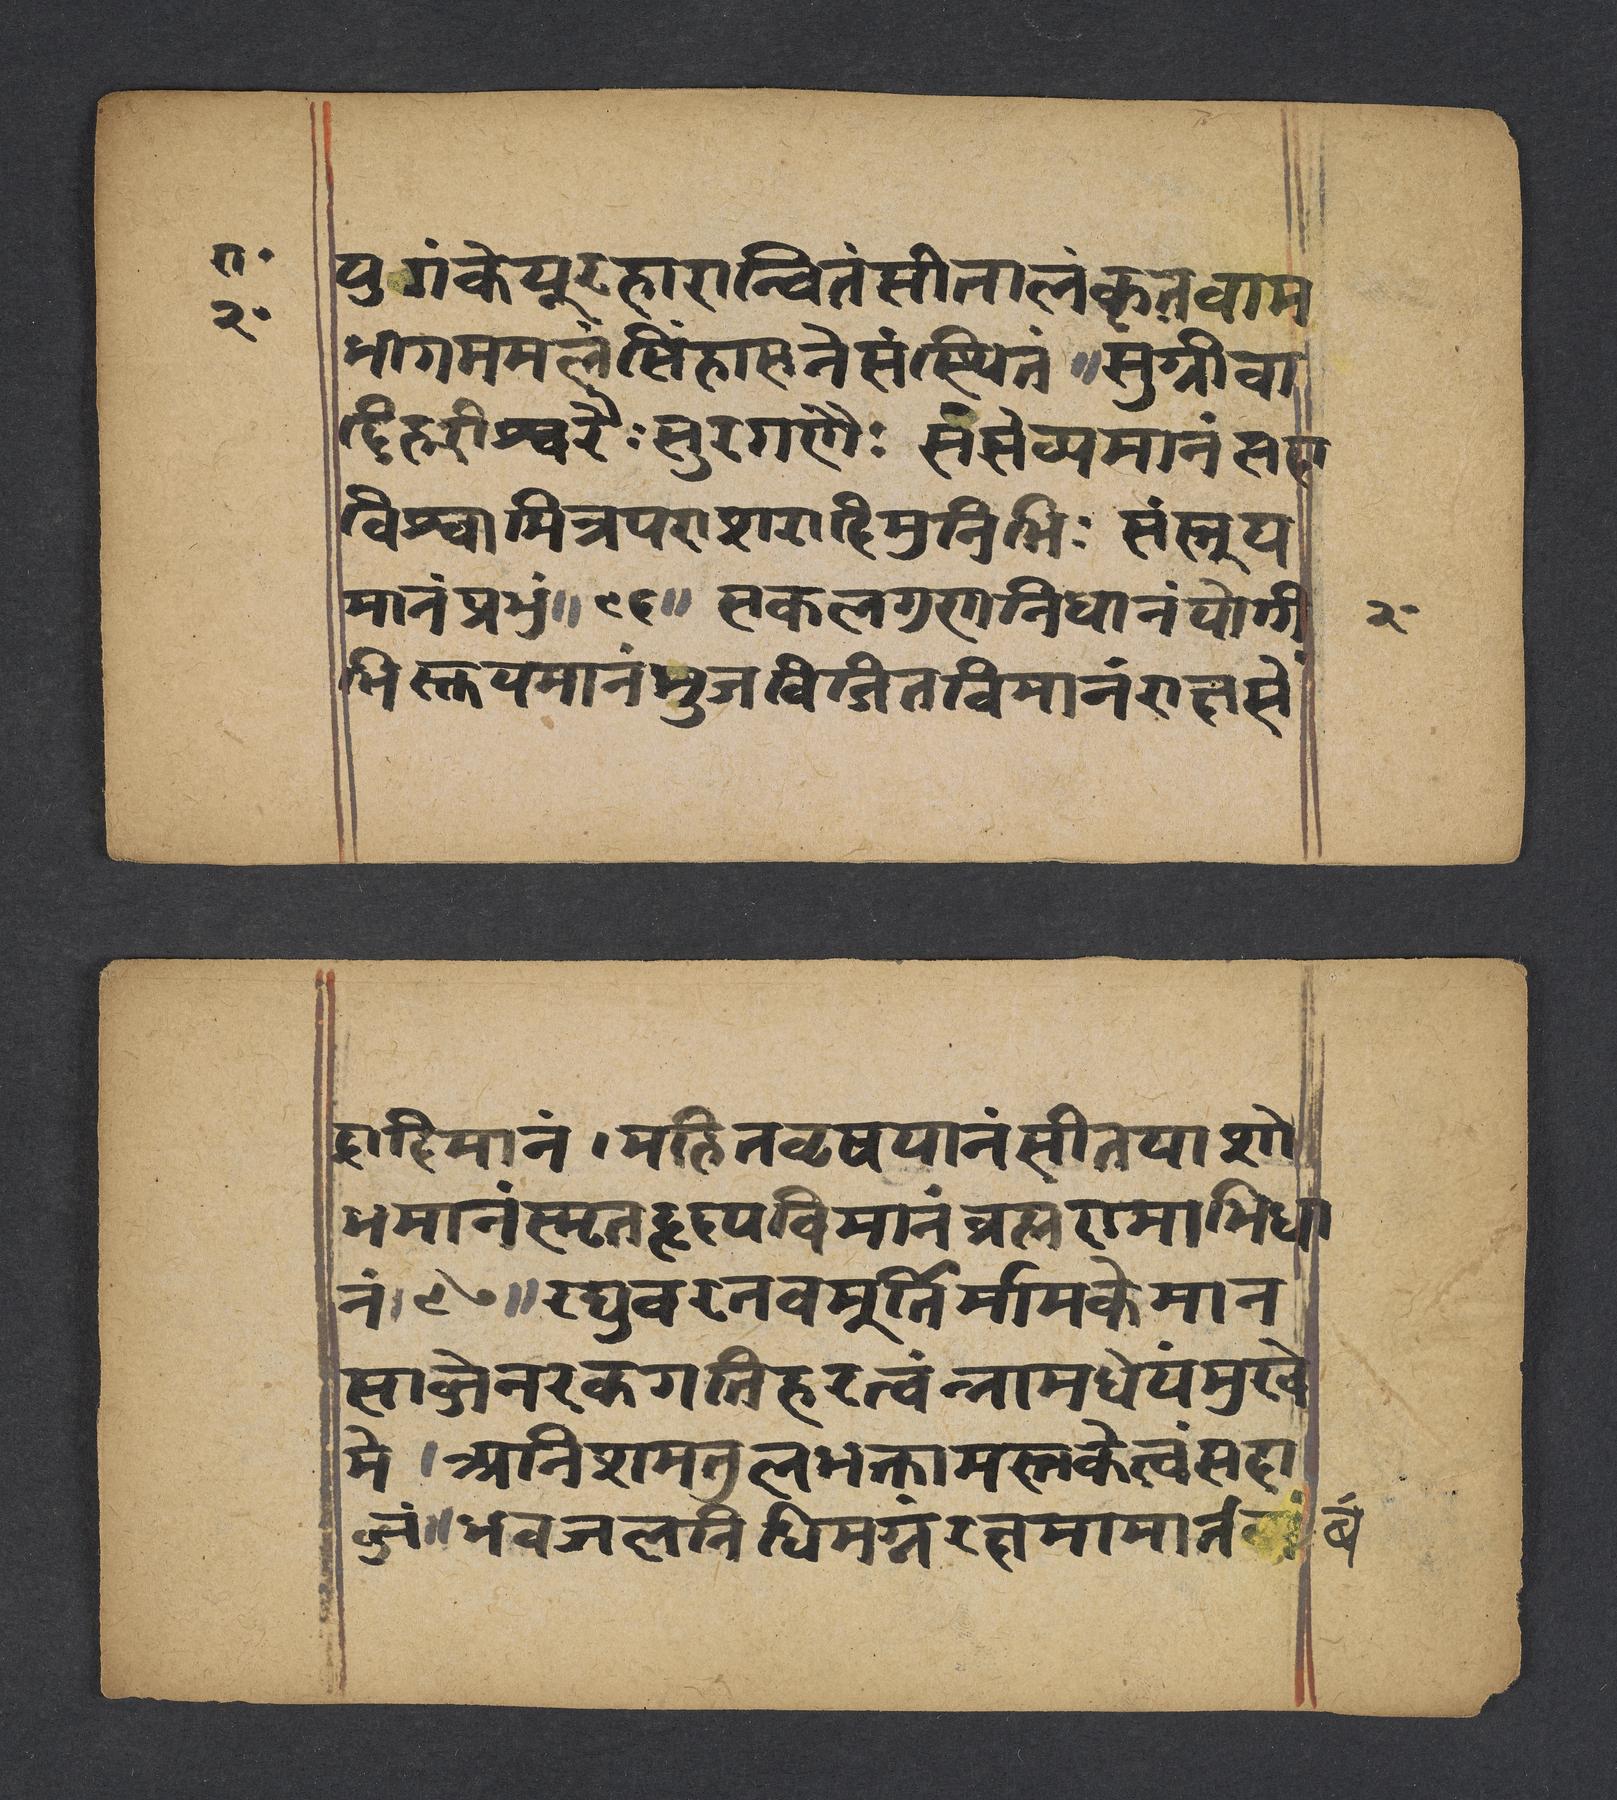 रा॰
२॰
युगंकेयूरहारान्वितंसीतालंकृतवाम
भागममलंसिंहासनेसंस्थितं ॥सुग्रीवा
दिहरीश्वरैः सुरगणैः संसेव्यमानंसदा
विश्वामित्रपराशरादिमुनिभिः संस्तूय
मानंप्रभुं॥ १६॥ सकलगुणनिधानंयोगी
भिस्तूयमानंभुजविजितविमानंराक्षसे
२॰
द्रादिमानं ।महितवृषयानंसीतयाशो
भमानंस्मृतहृदयविमानंब्रह्मरामाभिधा
नं।१७॥रघुवरतवमूर्तिर्मामकेमान
साब्जेनरकगतिहरत्वंन्नामधेयंमुखे
मे ।अनिशमतुलभक्तामस्तकेत्वंसदा
ब्जं॥भवजलनिधिमग्नंरक्षमामार्त
बं